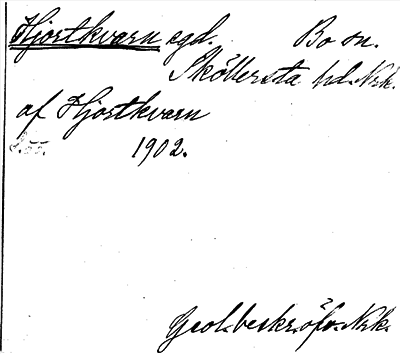 Hjortkvarn egd. Bo sn.
Sköllersta hd. Nrk.
af Hjortkvarn
1902.
Geol. beskr. öfv. Nrk.